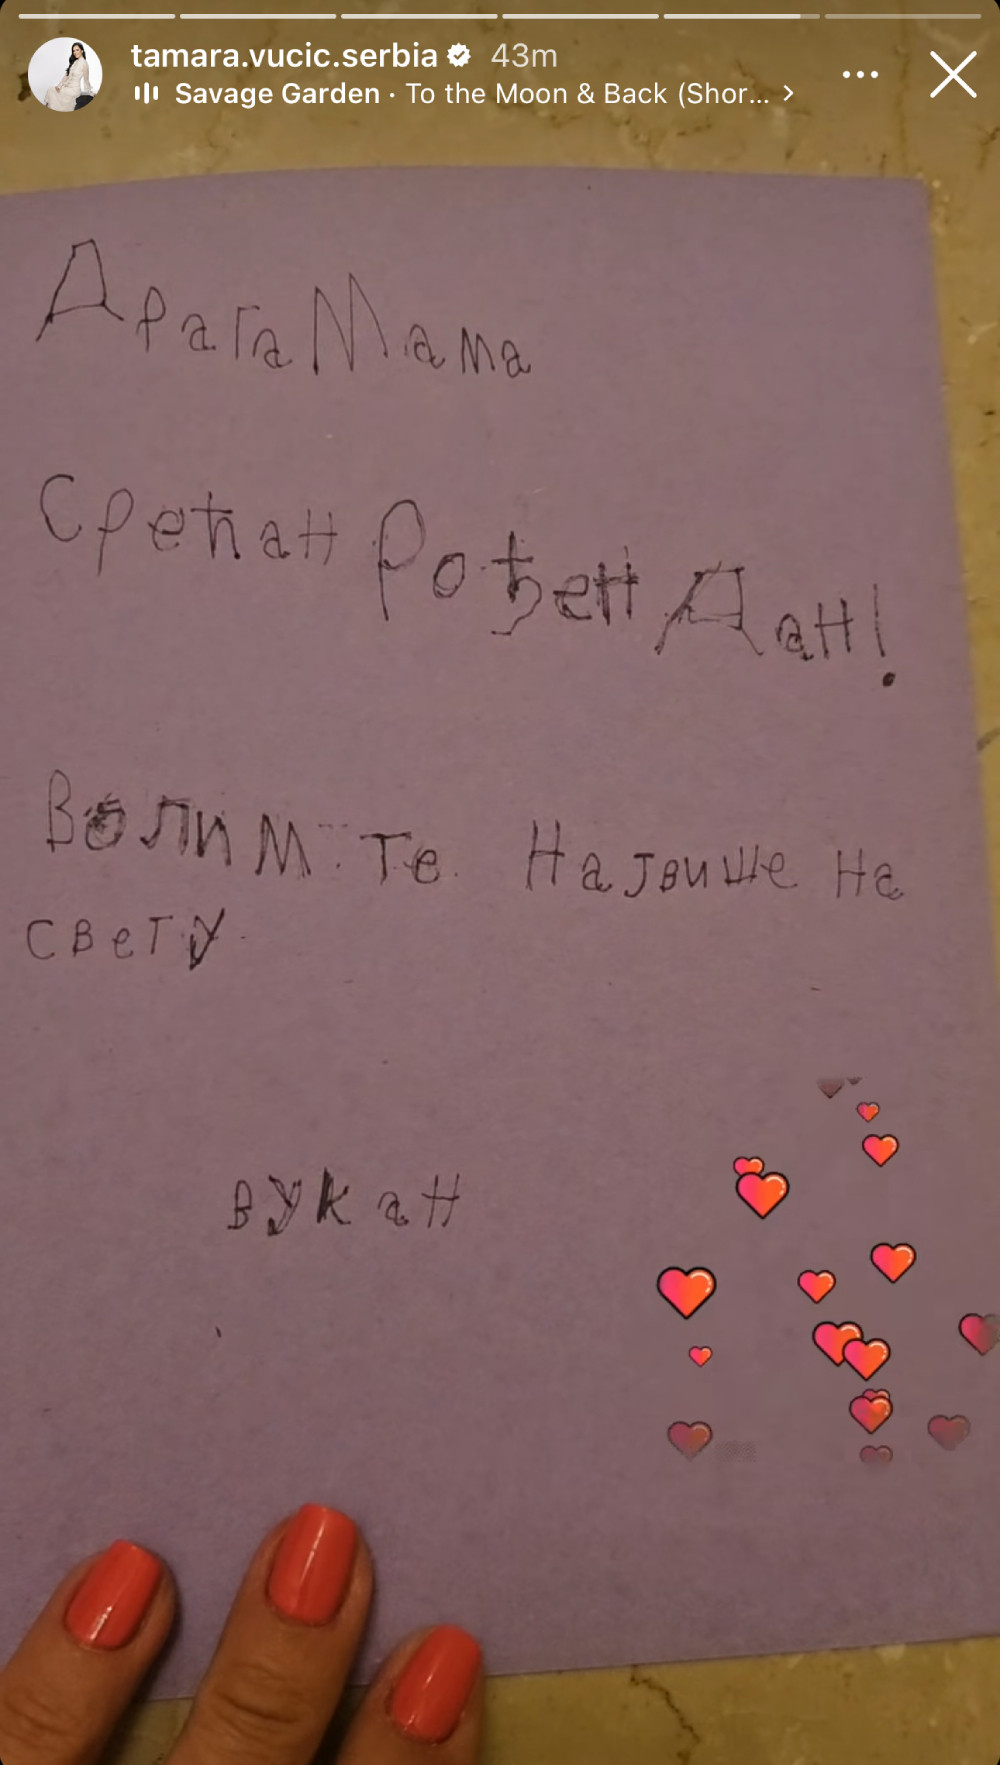 tamara.vucic.serbia 43m
Savage Garden · To the Moon & Back (Shor...
Драга Мама
Срећан Рођен Дан!
Волим те Највише на
свету
вукан